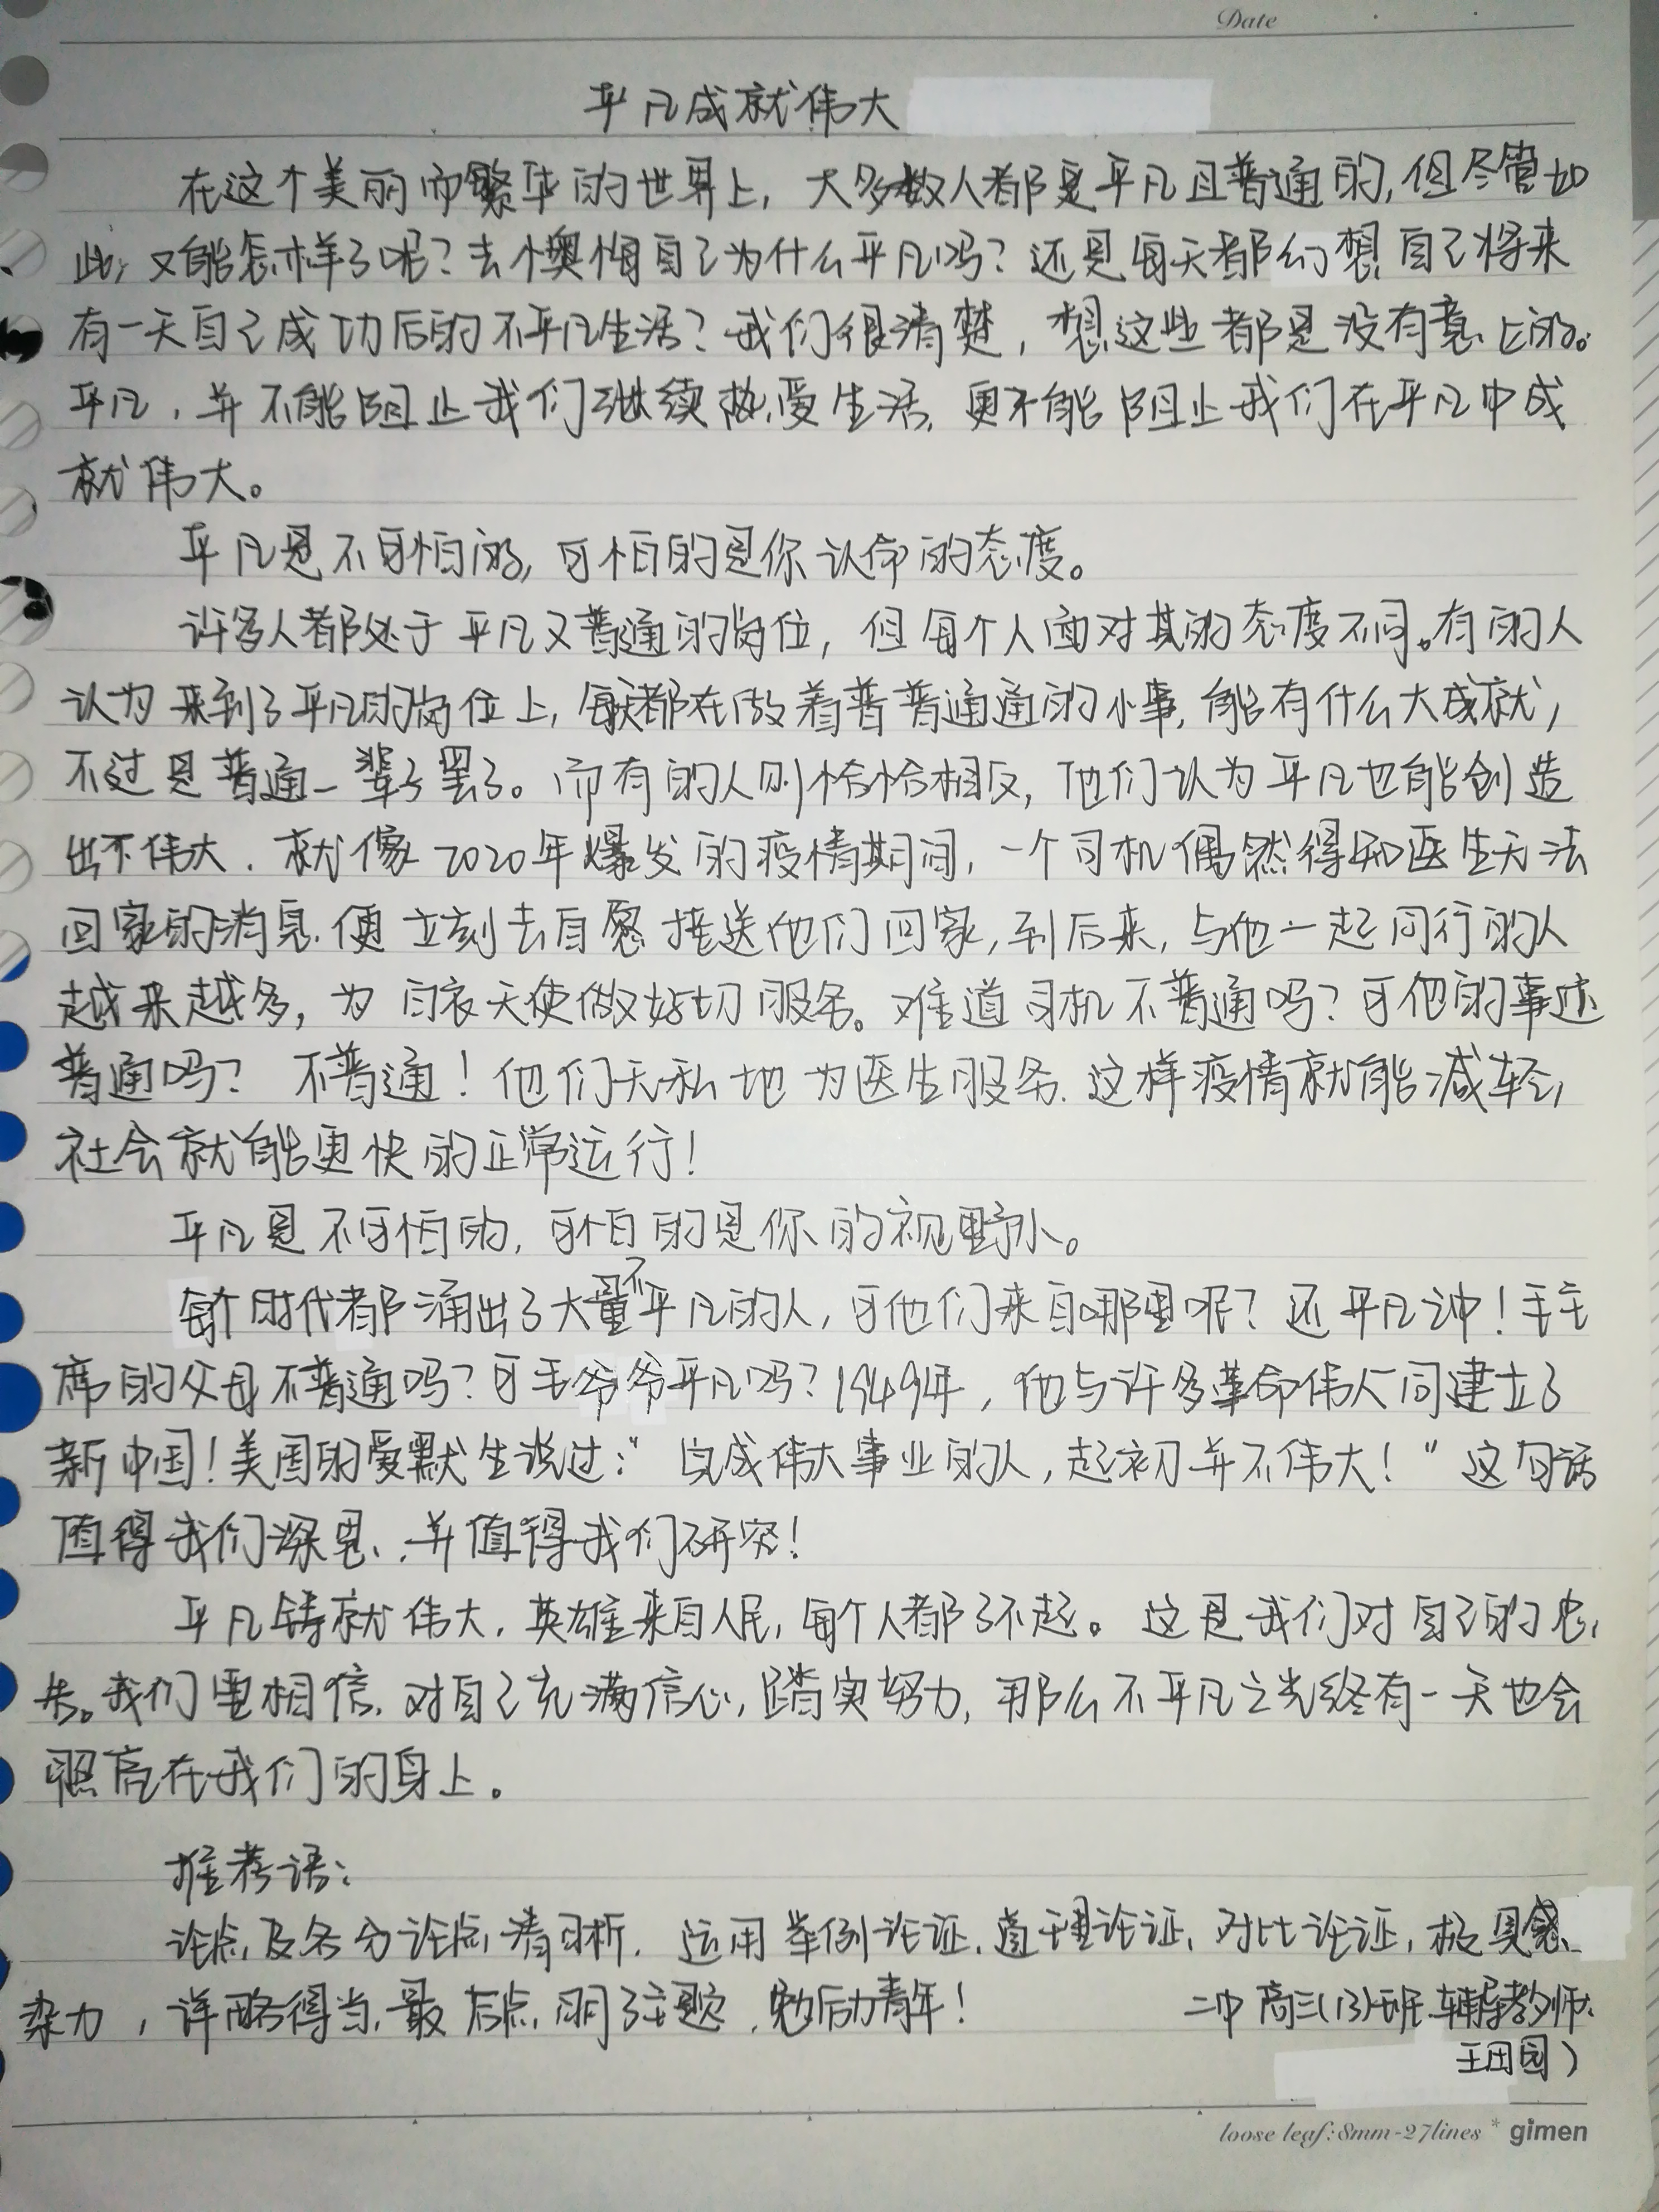 Date
平凡成就伟大
在这个美丽而繁华的世界上，大多数人都是平凡且普通的，但尽管如
此，又能怎样了呢？去懊悔自己为什么平凡吗？还是每天都幻想自己将来
有一天自己成功后的不平凡生活？我们很清楚，想这些都是没有意义的。
平凡，并不能阻止我们继续热爱生活，更不能阻止我们在平凡中成
就伟大。
平凡是不可怕的，可怕的是你认命的态度。
许多人都处于平凡又普通的岗位，但每个人面对其的态度不同。有的人
认为来到了平凡的岗位上，每天都在做着普普通通的小事，能有什么大成就，
不过是普通一辈子罢了。而有的人则恰恰相反，他们认为平凡也能创造
出不伟大．就像2020年爆发的疫情期间，一个司机偶然得知医生无法
回家的消息．便立刻去自愿接送他们回家，到后来，与他一起同行的人
越来越多，为白衣天使做好切服务。难道司机不普通吗？可他的事迹
普通吗？不普通！他们无私地为医生服务．这样疫情就能减轻，
社会就能更快的正常运行！
平凡是不可怕的，可怕的是你的视野小。
每个时代都涌出了大量不平凡的人，可他们来自哪里呢？还平凡中！毛主
席的父母不普通吗？可毛爷爷平凡吗？1949年，他与许多革命伟人同建立了
新中国！美国的爱默生说过：“完成伟大事业的人，起初并不伟大！”这句话
值得我们深思，并值得我们研究！
平凡铸就伟大，英雄来自人民，每个人都了不起。这是我们对自己的
我们要相信．对自己充满信心，踏实努力，那么不平凡之光终有一天也会
照亮在我们的身上。
推荐语：
论点及各分论点清晰．运用举例论证、道理论证、对比论证，极具感
染力，详略得当，最后点明了主题，勉励青年！
二中高三(13)班．辅导教师：
王田园）
loose leaf:8mm-27lines * gimen